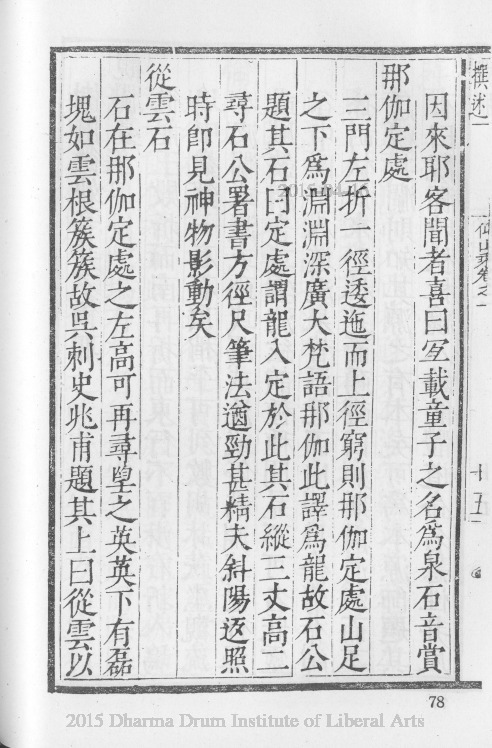 撰述一
仰山乘卷之一
十五
因來耶客聞者喜曰宜載童子之名爲泉石音賞
那伽定處
三門左折一徑逶迤而上徑窮則那伽定處山足
之下爲淵淵深廣大梵語那伽此譯爲龍故石公
題其石曰定處謂龍入定於此其石縱三丈高二
尋石公署書方徑尺筆法遒勁甚精夫斜陽返照
時卽見神物影動矣
從雲石
石在那伽定處之左高可再尋望之英英下有磊
塊如雲根簇簇故吳刺史兆甫題其上曰從雲以
78
2015 Dharma Drum Institute of Liberal Arts